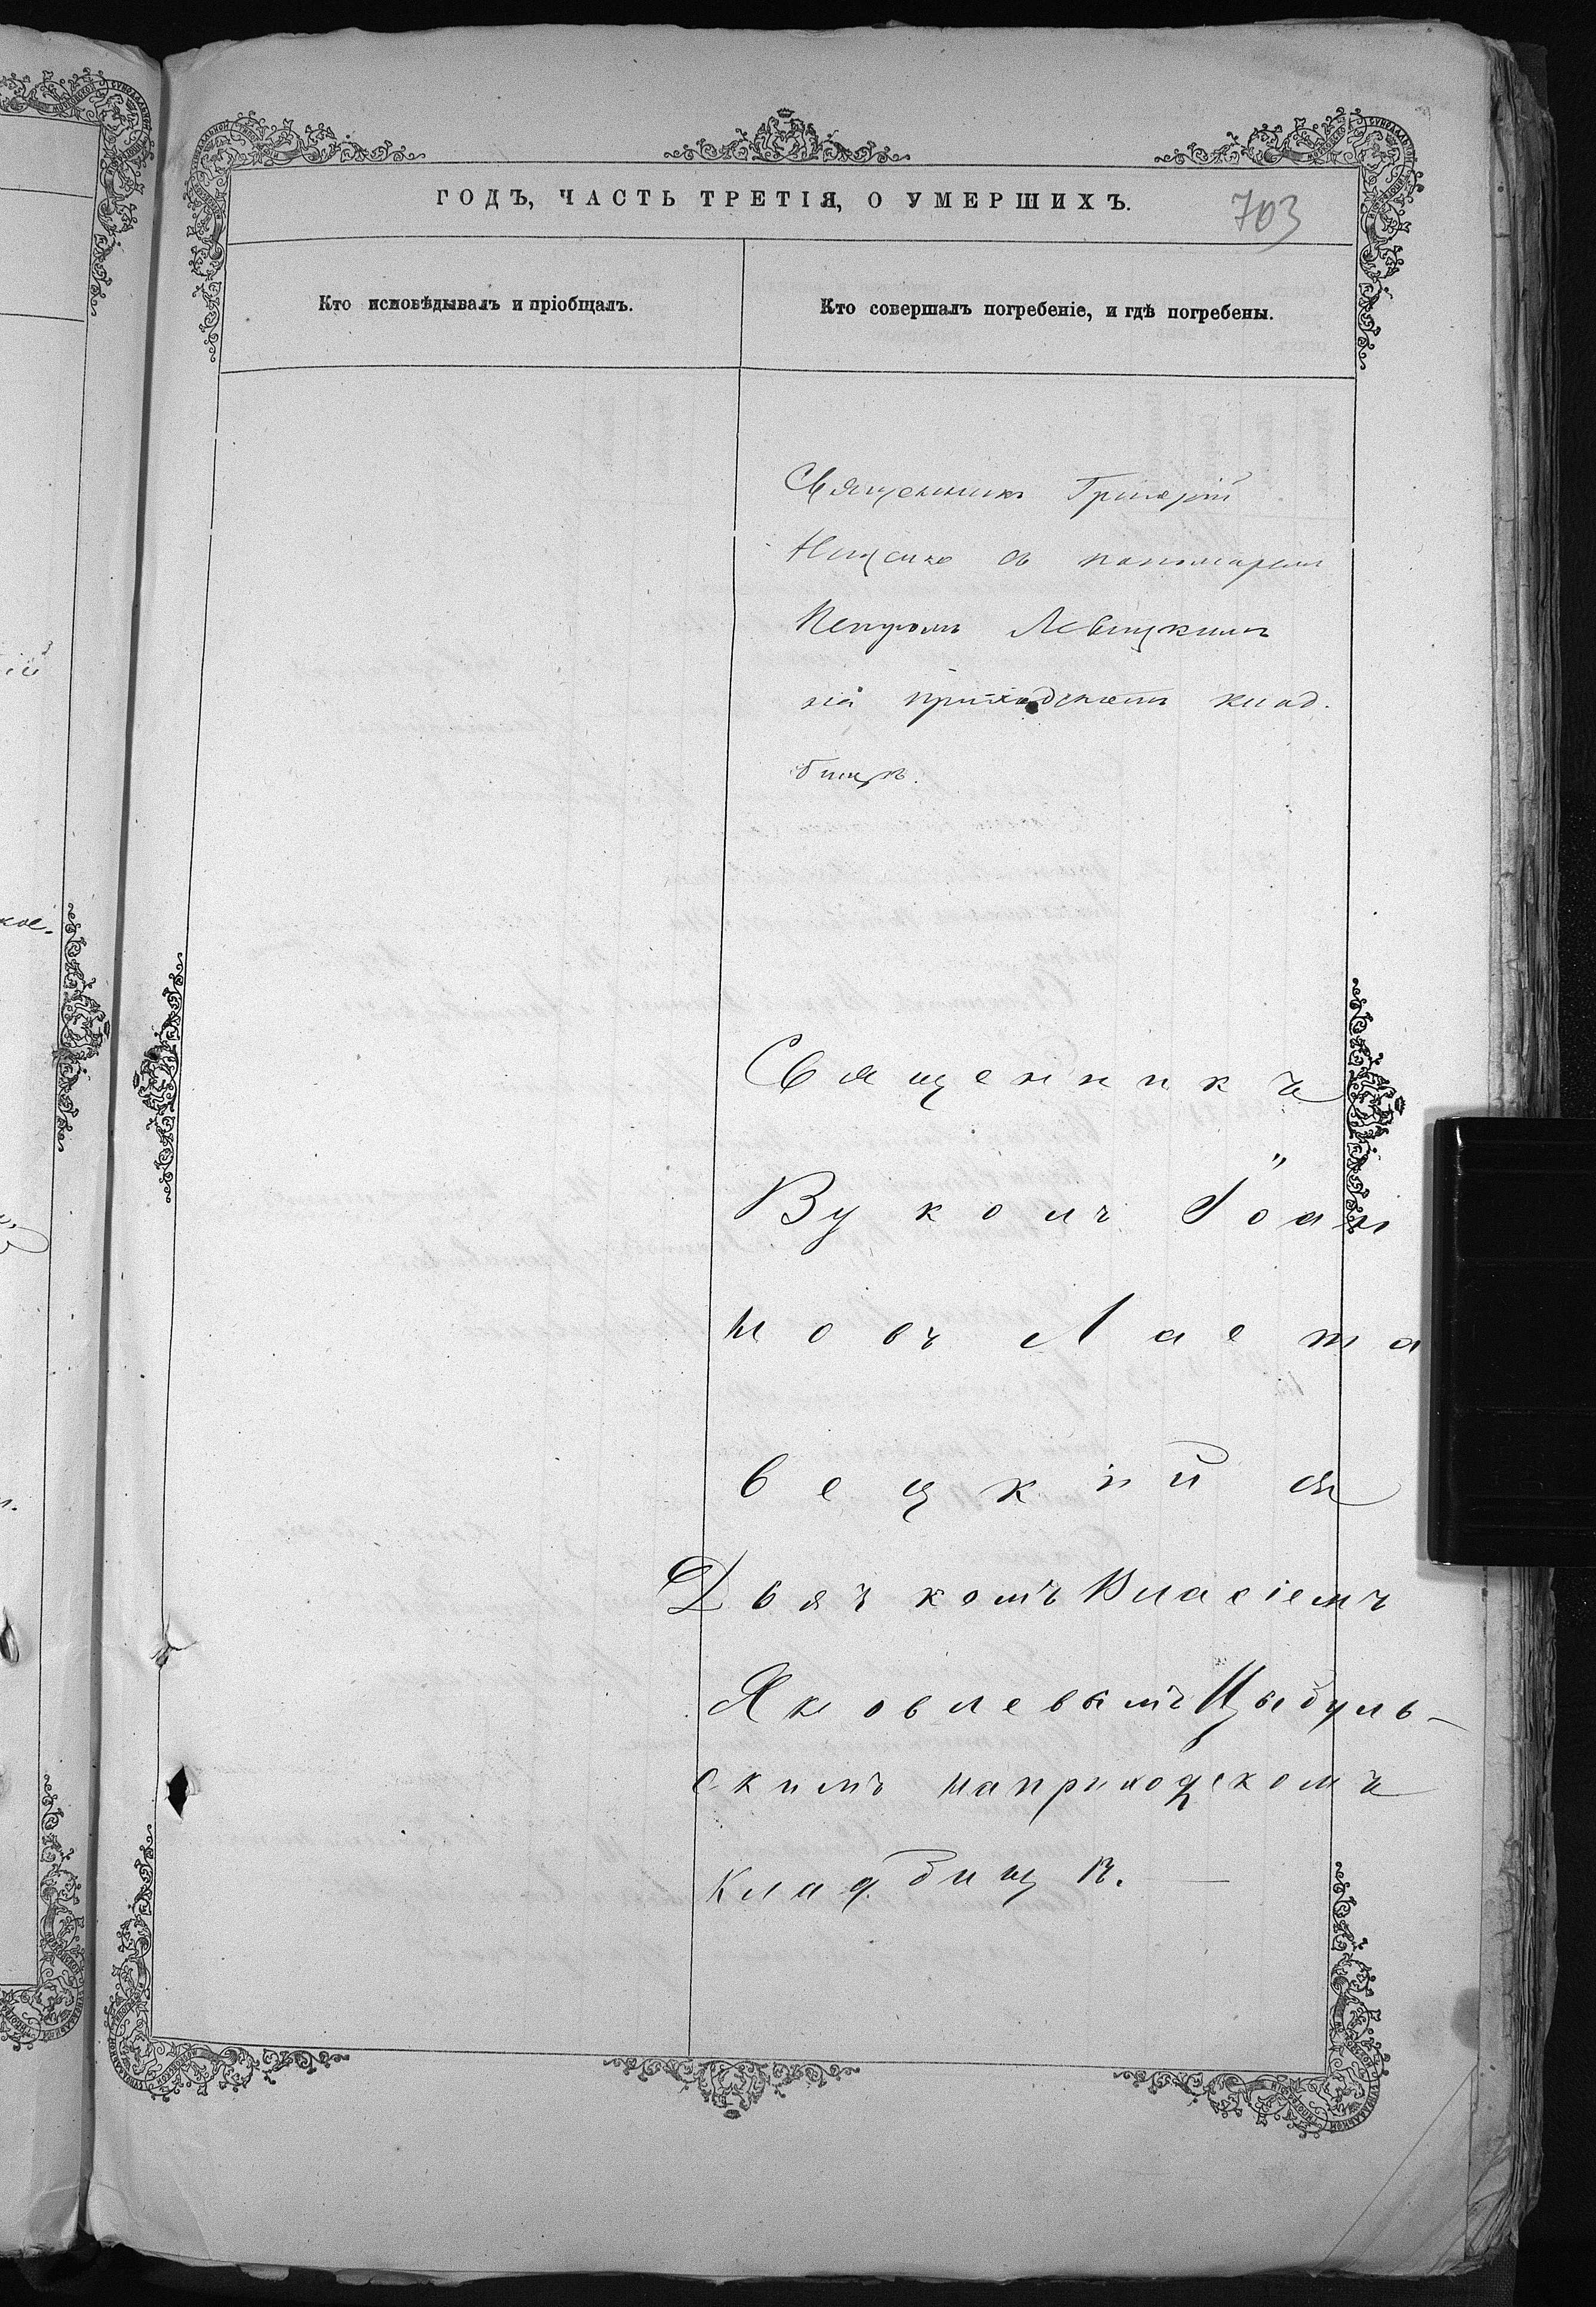 ГОДЪ, ЧАСТЬ ТРЕТІЯ, О УМЕРШИХЪ.
703
Кто исповѣдывалъ и пріобщалъ.
Кто совершалъ погребеніе, и гдѣ погребены.
Священникъ Григорій
съ пономаремъ
Петромъ Левицкимъ
на приходскомъ клад.
бищѣ.
Священникъ
Вуколъ Іоан
новъ Ласта
вецкій съ
Дьячкомъ Власіемъ
Яковлевымъ Цыбуль-
скимъ наприходскомъ
кладбищѣ. —